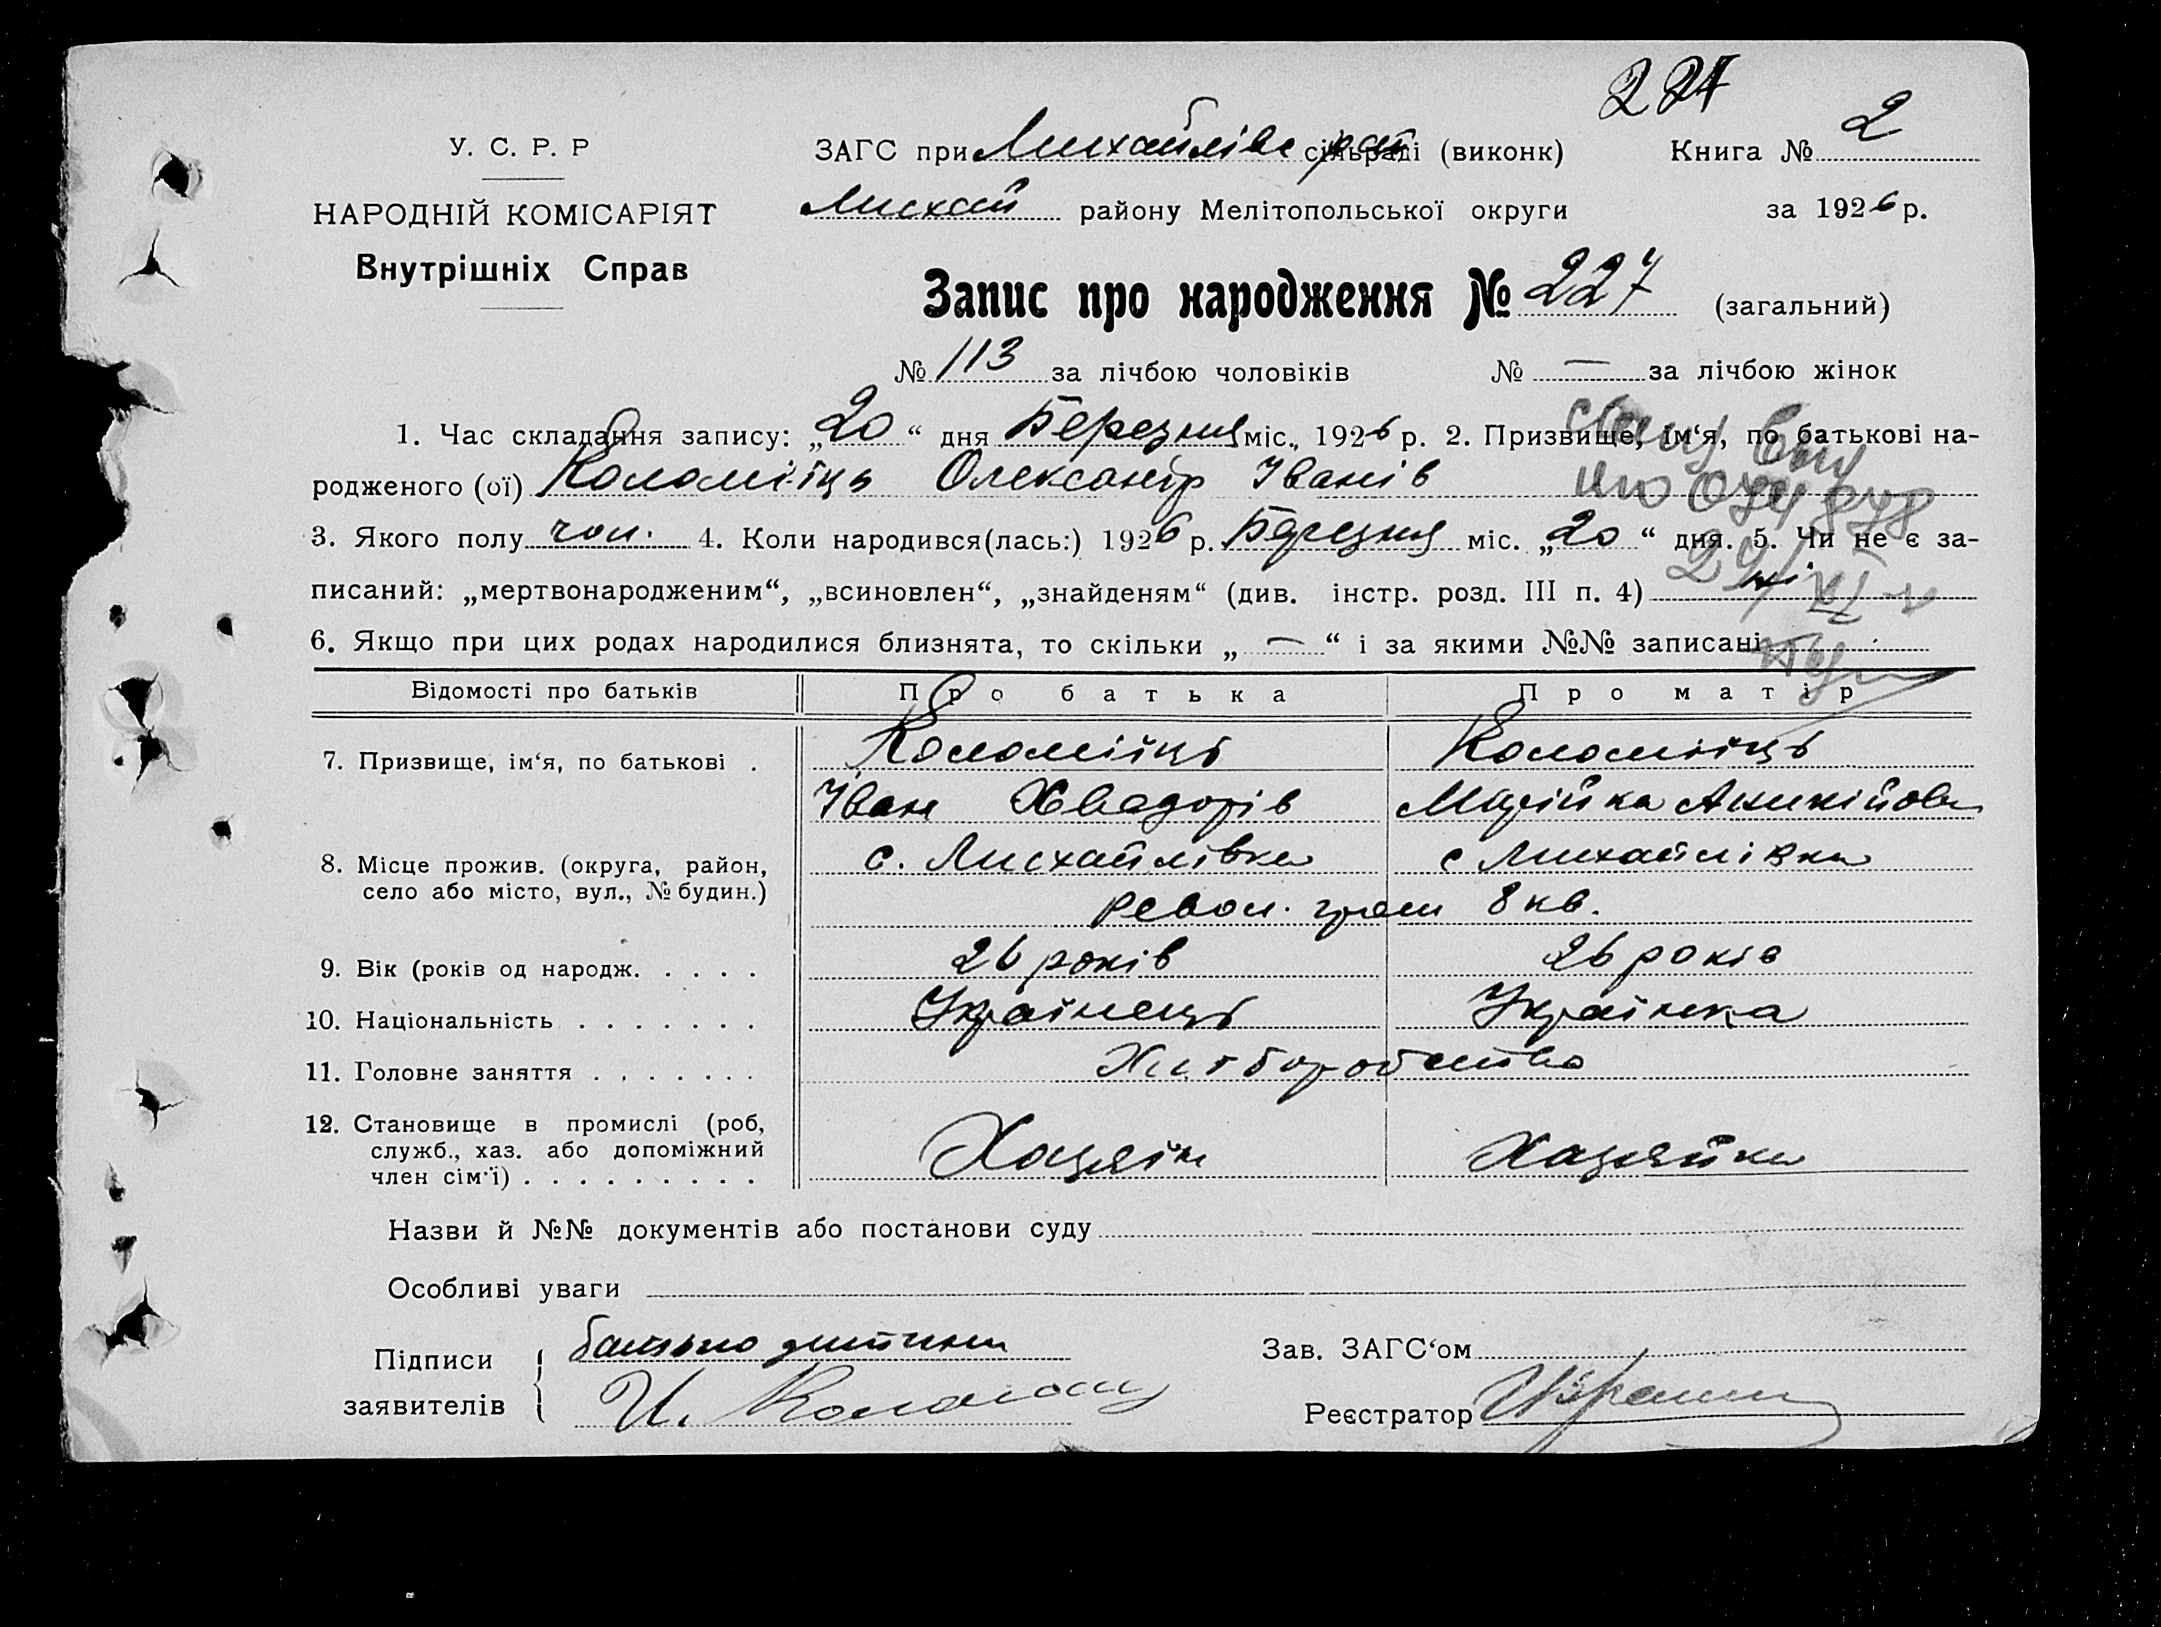 227
У. С. Р. Р
ЗАГС при Михайлівс сільраді (виконк) Книга № 2
НАРОДНІЙ КОМІСАРІЯТ
Михай району Мелітопольської округи за 1926 р.
Внутрішніх Справ
Запис про народження № 227 (загальний)
№ 113 за лічбою чоловіків № — за лічбою жінок
1. Час складання запису: „20“ дня Березня міс., 1926 р. 2. Призвище, ім‘я, по батькові на-
родженого (ої) Коломієць Олександр Іванів
3. Якого полу чол. 4. Коли народився(лась:) 1926 р. Березня міс. „20“ дня. 5. Чи не є за-
писаний: „мертвонародженим“, „всиновлен“, „знайденям“ (див. інстр. розд. III п. 4) ні
6. Якщо при цих родах народилися близнята, то скільки „ — “ і за якими №№ записані
Відомості про батьків Про батька Про матір
7. Призвище, ім‘я, по батькові . Коломієць Коломієць
Іван Хведорів Марійка Аникійова
8. Місце прожив. (округа, район, с. Михайлівка с Михайлівка
село або місто, вул., № будин.) револ. гром 8 кв.
9. Вік (років од народж. . . . . 26 років 26 років
10. Національність . . . . . . . Українець Українка
11. Головне заняття . . . . . . . Хліборобство
12. Становище в промислі (роб,
служб., хаз. або допоміжний Хазяїн Хазяйка
член сім'ї) . . . . . . . . .
Назви й №№ документів або постанови суду
Особливі уваги
Підписи батько дитини Зав. ЗАГС‘ом
заявителів И. Коломиец Реєстратор